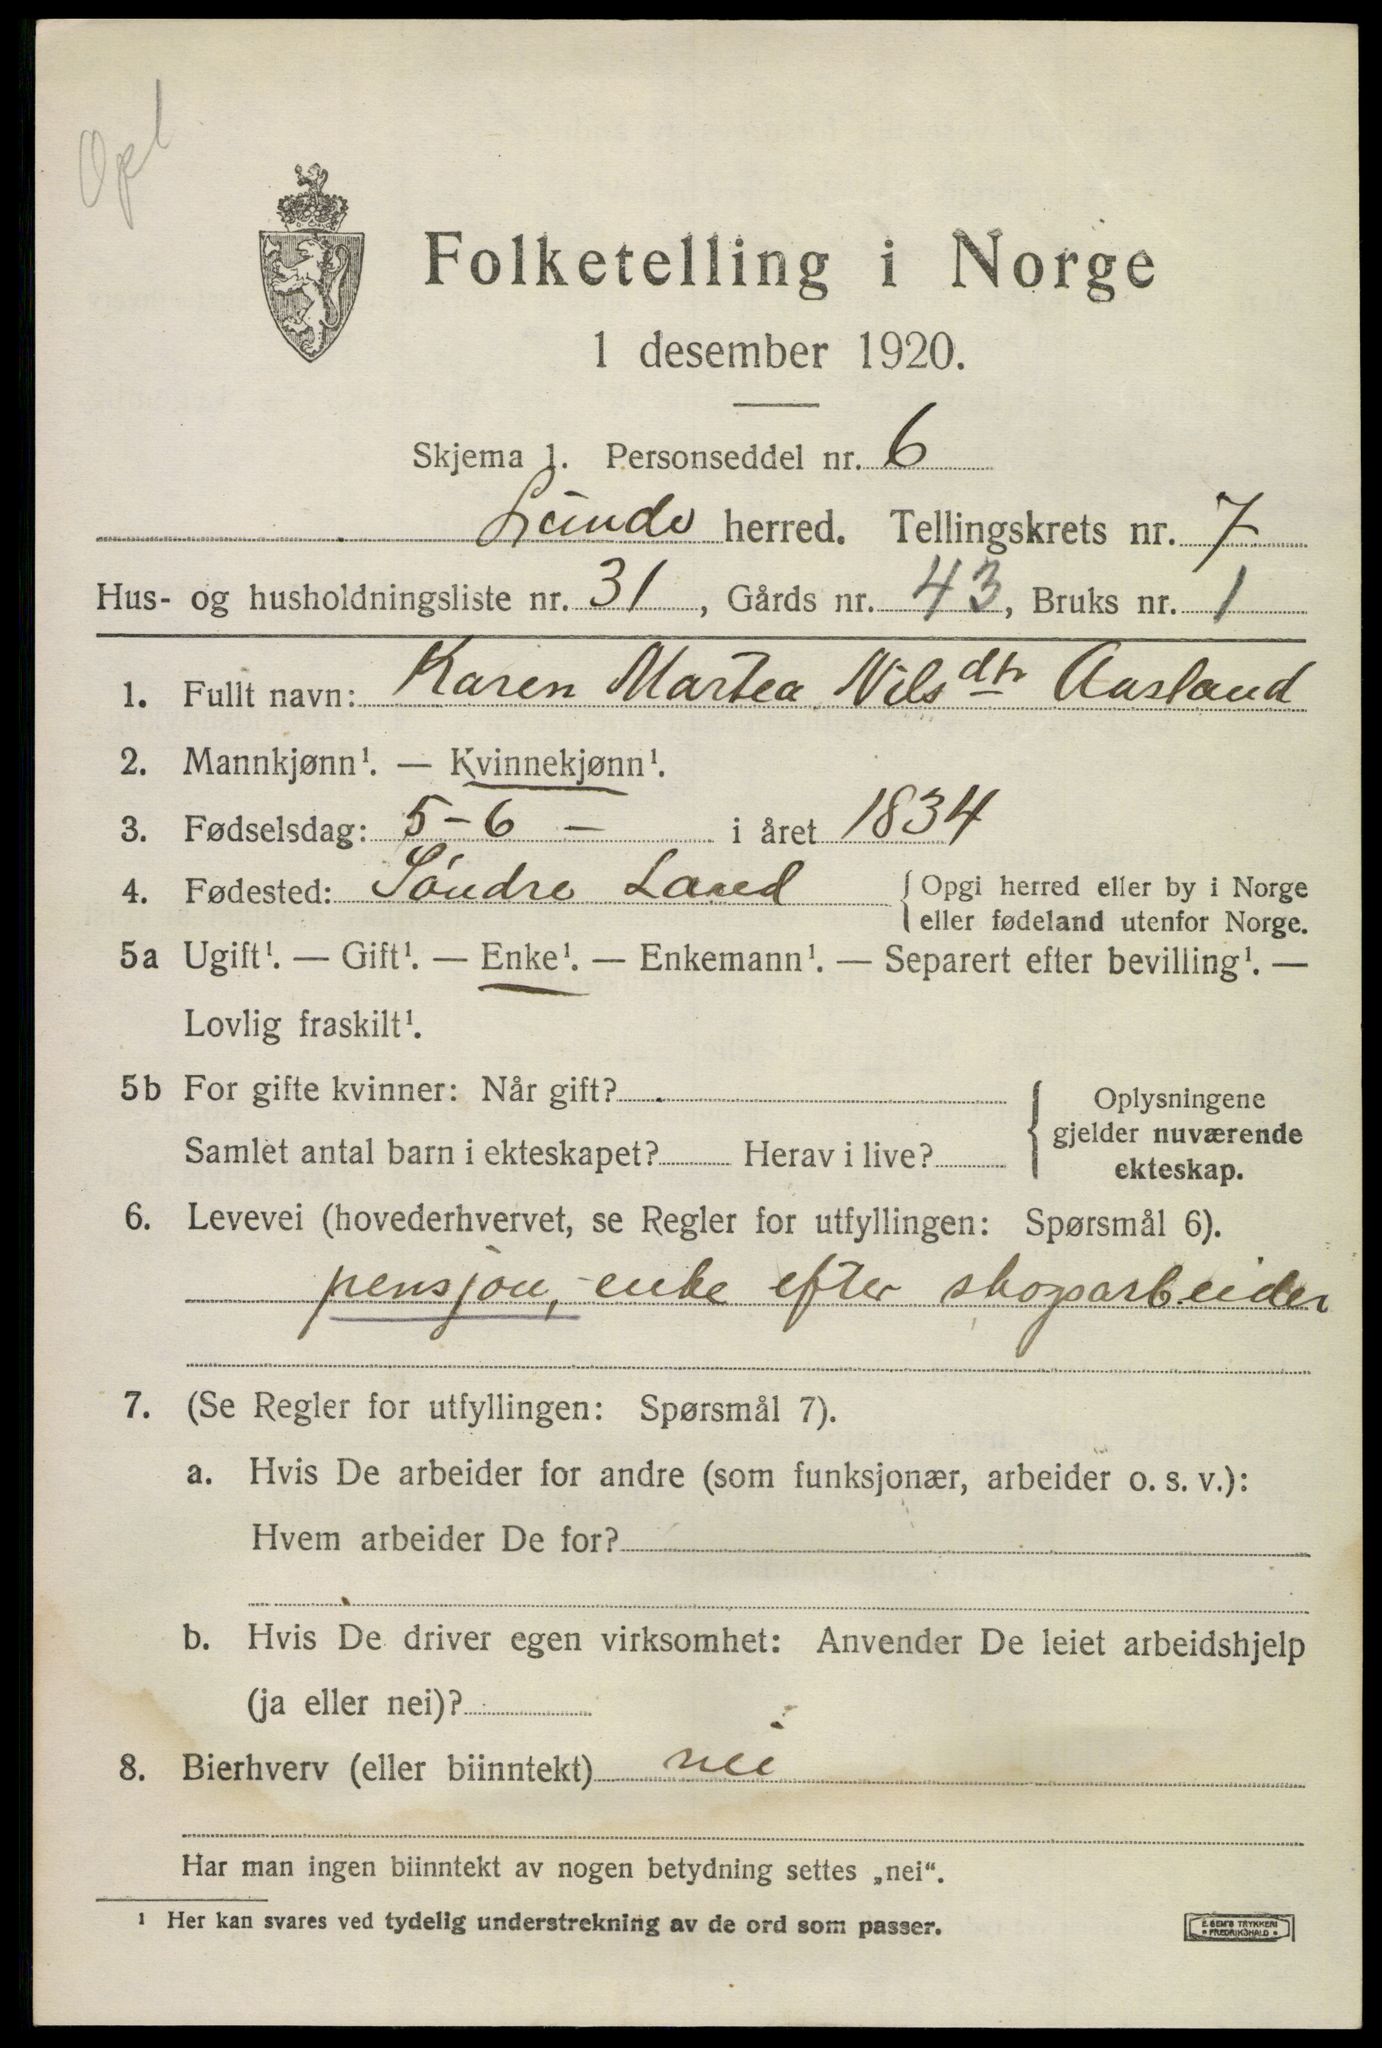 Opl
Folketelling i Norge
1 desember 1920.
Skjema 1. Personseddel nr. 6
Lunde herred. Tellingskrets nr. 7
Hus- og husholdningsliste nr. 31, Gårds nr. 43, Bruks nr. 1
1. Fullt navn: Karen Martea Nilsdtr Aasland
2. Mannkjønn¹. — Kvinnekjønn¹.
3. Fødselsdag: 5-6 - i året 1834
4. Fødested: Søndre Land { Opgi herred eller by i Norge
eller fødeland utenfor Norge.
5a Ugift¹. — Gift¹. — Enke¹. — Enkemann¹. — Separert efter bevilling¹. —
Lovlig fraskilt¹.
5b For gifte kvinner: Når gift?
Samlet antal barn i ekteskapet? Herav i live?
{ Oplysningene
gjelder nuværende
ekteskap.
6. Levevei (hovederhvervet, se Regler for utfyllingen: Spørsmål 6).
pensjon, - enke efter skogsarbeider
7. (Se Regler for utfyllingen: Spørsmål 7).
a. Hvis De arbeider for andre (som funksjonær, arbeider o. s. v.):
Hvem arbeider De for?
b. Hvis De driver egen virksomhet: Anvender De leiet arbeidshjelp
(ja eller nei)?
8. Bierhverv (eller biinntekt) nei
Har man ingen biinntekt av nogen betydning settes „nei“.
¹ Her kan svares ved tydelig understrekning av de ord som passer.
E. SEM'S TRYKKERI
• FREDRIKSHALD •